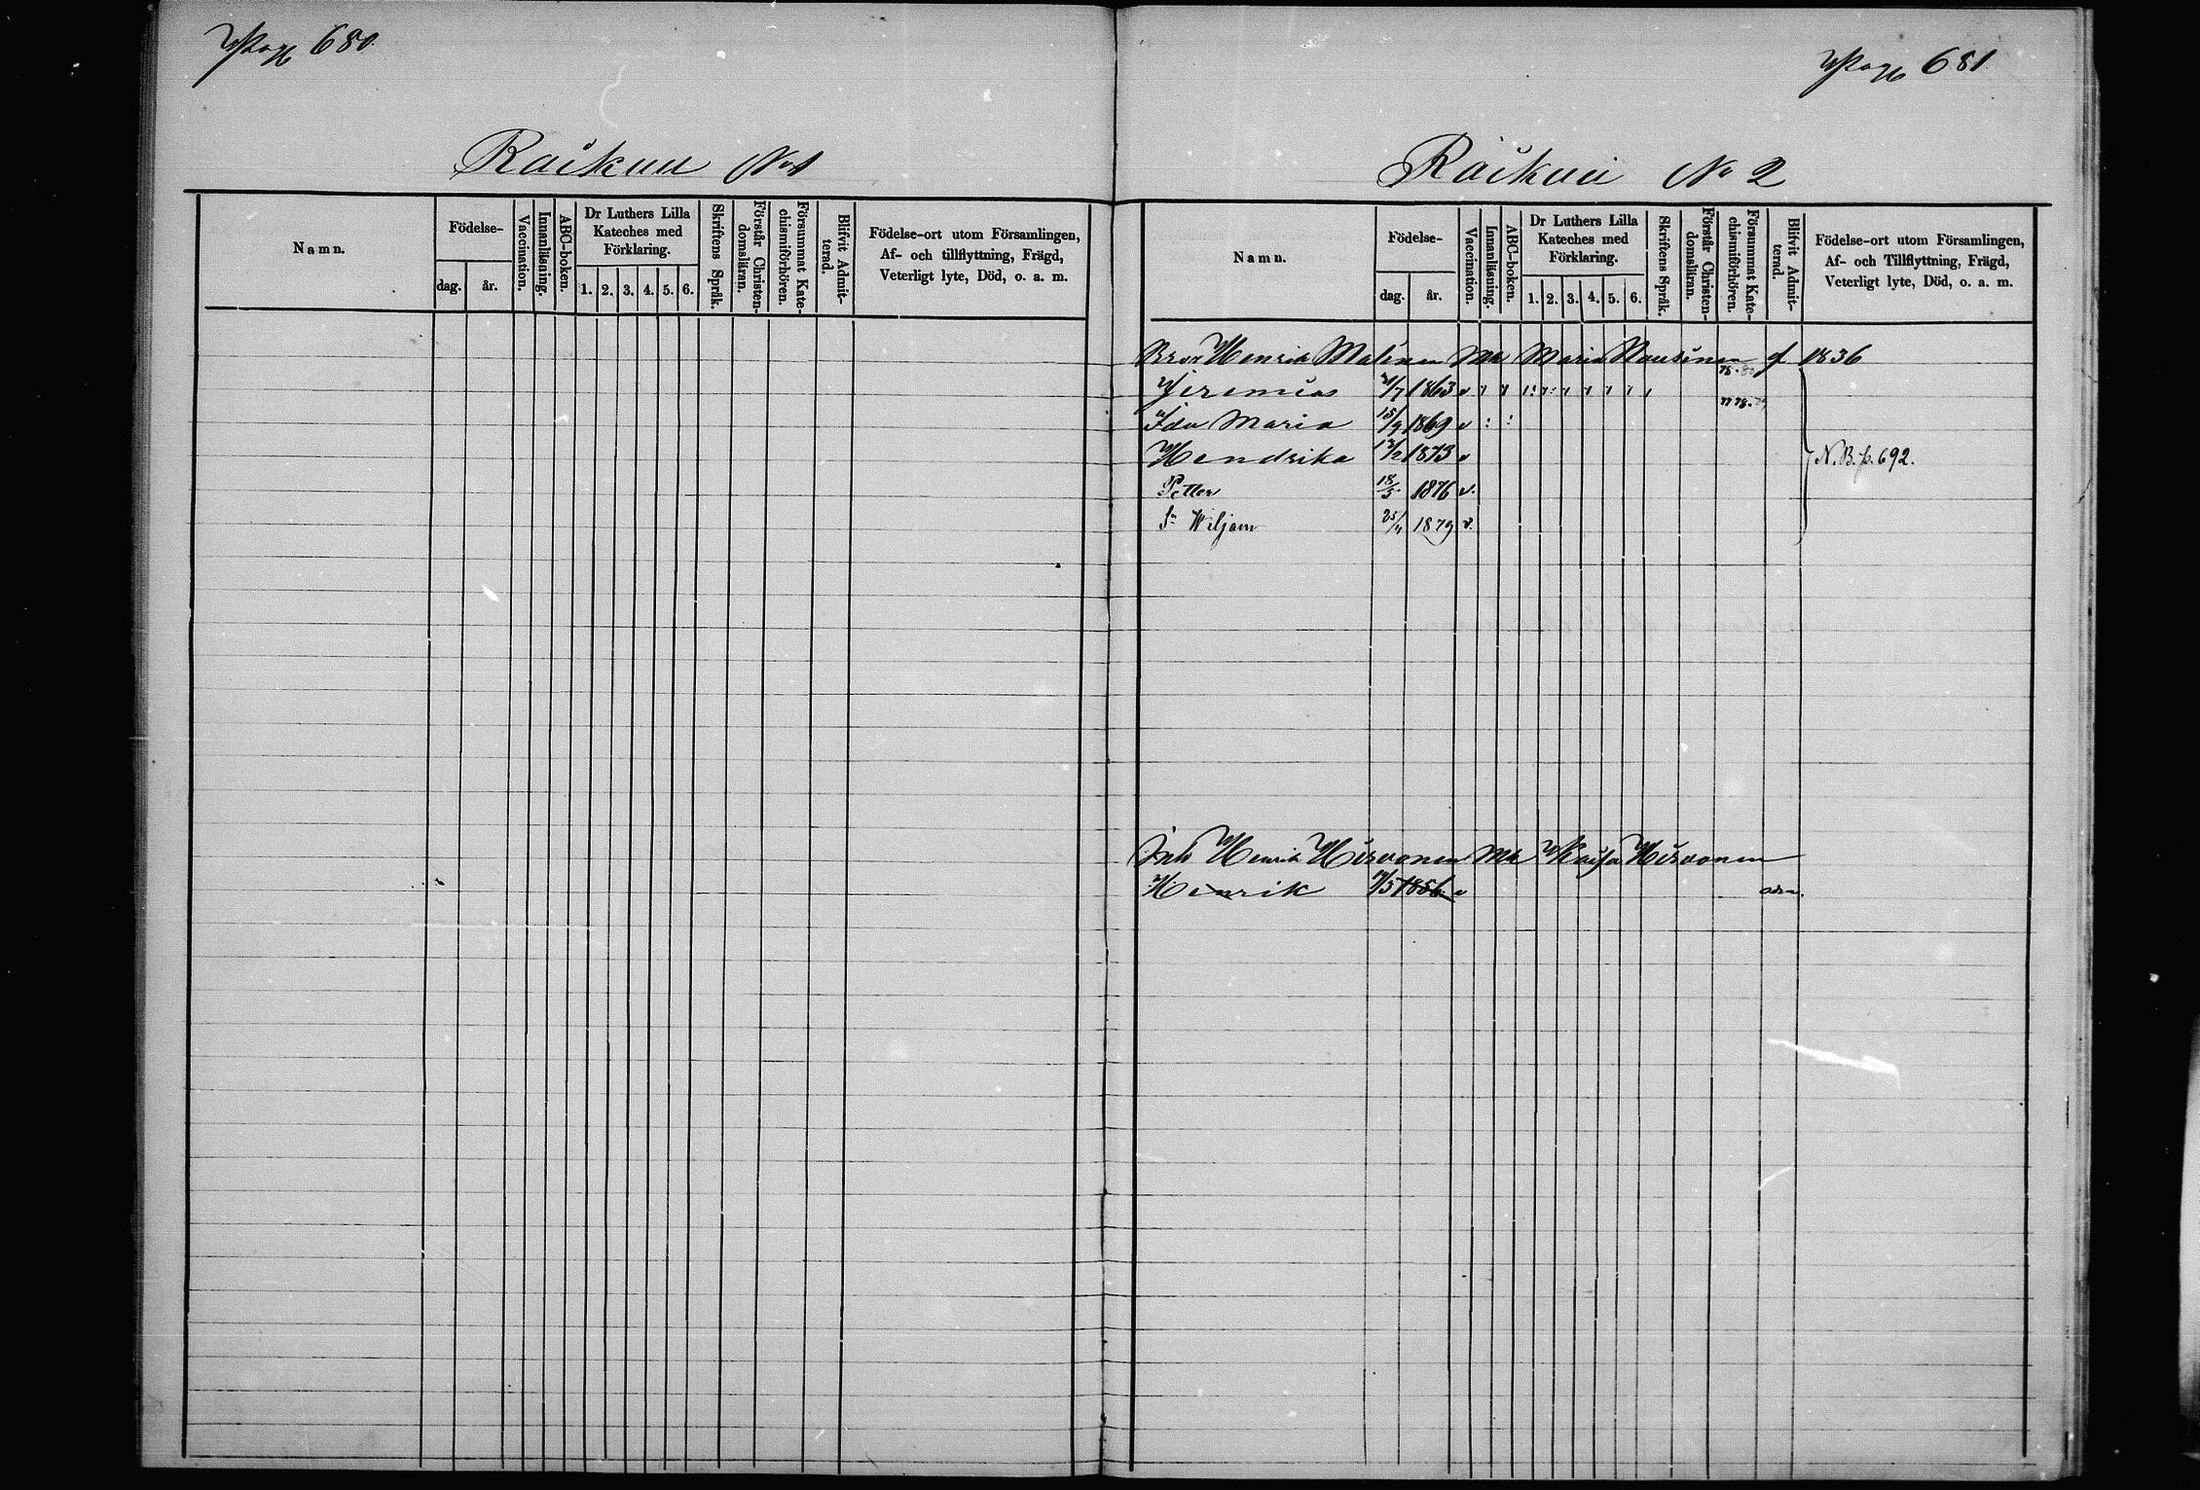 Pag 680
Raikuu No 1
Namn.
Födelse-
dag.
år.
Vaccination.
Innanläsning.
ABC-boken.
Dr Luthers Lilla
Kateches med
Förklaring.
1. 2. 3. 4. 5. 6.
Skriftens Språk.
Förstår Christen-
domsläran.
Försummat Kate-
chismiförhören.
Blifvit Admit-
terad.
Födelse-ort utom Församlingen,
Af- och tillflyttning, Frägd,
Veterligt lyte, Död, o. a. m.
Pag 681
Raikuu No 2
Namn.
Födelse-
dag.
år.
Vaccination.
Innanläsning.
ABC-boken.
Dr Luthers Lilla
Kateches med
Förklaring.
1. 2. 3. 4. 5. 6.
Skriftens Språk.
Förstår Christen-
domsläran.
Försummat Kate-
chismiförhören.
Blifvit Admit-
terad.
Födelse-ort utom Församlingen,
Af- och Tillflyttning, Frägd,
Veterligt lyte, Död, o. a. m.
Henrik Malinen Maria Nousinen f 1836
Jeremias 1863 v
Ida Maria 15/9 1869 v
Hendrika 1873 v
N.B. p. 692.
Petter 18/5 1876 v.
Sn Wiljam 25/11 1879 v.
Inh Henrik Hirvonen Kaisa Hirvonen
Henrik 1856 v adm.